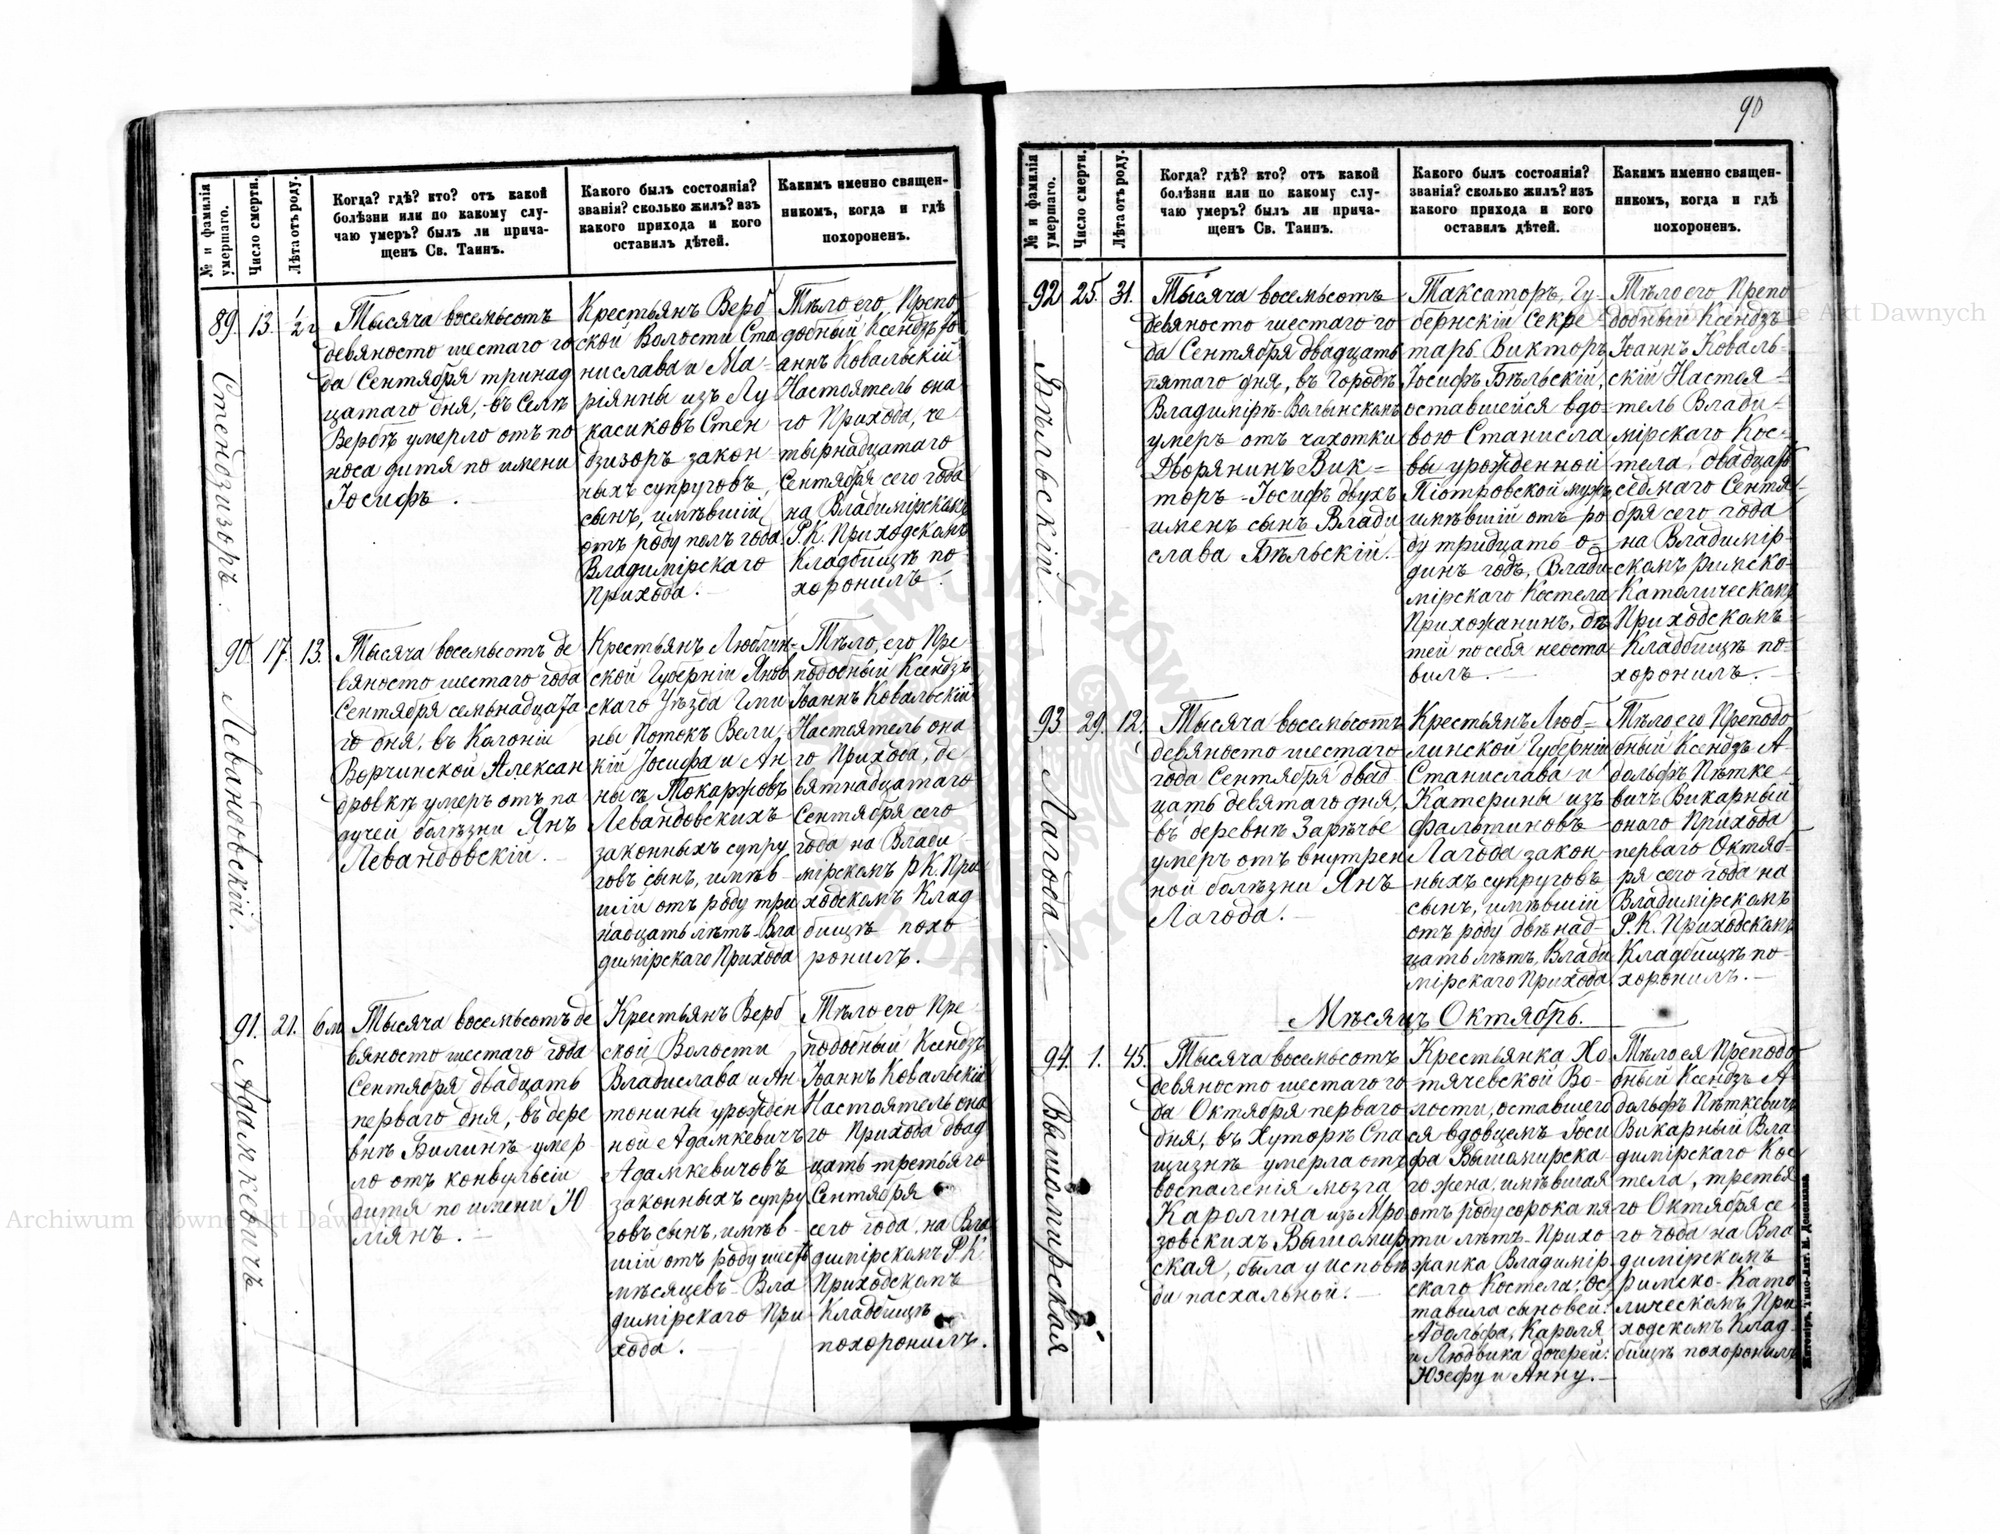 90
№ и фамилія умершаго.
Число смерти.
Лѣта отъ роду.
Когда? гдѣ? кто? отъ какой
болѣзни или по какому слу-
чаю умеръ? былъ ли прича-
щенъ Св. Таинъ.
Какого былъ состоянія?
званія? сколько жилъ? изъ
какого прихода и кого
оставилъ дѣтей.
Какимъ именно священ-
никомъ, когда и гдѣ
похороненъ.
89. 13. ½ г.
Стендзизоръ.
Тысяча восемьсотъ
девяносто шестаго го
да Сентября тринад
цатаго дня, въ Селѣ
Вербѣ умерло отъ по
носа дитя по имени
Іосифъ.
Крестьянъ Верб
ской Волости Ста
нислава и Ма-
ріянны изъ Лу
касиковъ Стен
дзизоръ закон-
ныхъ супруговъ
сынъ, имѣвшій
отъ роду полъ года
Владимірскаго
Прихода.
Тѣло его, Препо
добный Ксендзъ Іо
аннъ Ковальскій
Настоятель она
го Прихода, че
тырнадцатаго
Сентября сего года
на Владимірскомъ
Р. К. Приходскомъ
Кладбищѣ по-
хоронилъ.
90. 17. 13.
Левандовскій.
Тысяча восемьсотъ де
вяносто шестаго года
Сентября семьнадцата
го дня, въ Колоніи
Ворчинской Алексан
дровкѣ умеръ отъ па
дучей болѣзни Янъ
Левандовскій.
Крестьянъ Люблин-
ской Губерніи Янов
скаго Уѣзда Гми
ны Потокъ Вели
кій Іосифа и Ан
ны съ Токаржовъ
Левандовскихъ
законныхъ супру
говъ сынъ, имѣв-
шій отъ роду три
надцать лѣтъ Вла
димірскаго Прихода
Тѣло, его Пре
подобный Ксендзъ
Іоаннъ Ковальскій
Настоятель она
го Прихода, де
вятнадцатаго
Сентября сего
года на Влади-
мірскомъ Р. К. При
ходскомъ Клад
бищѣ похо-
ронилъ.
91. 21. 6 м.
Адамкевичъ.
Тысяча восемьсотъ де
вяносто шестаго года
Сентября двадцать
перваго дня, въ дере
внѣ Билинѣ умер
ло отъ конвульсіи
дитя по имени Ю
лянъ.
Крестьянъ Верб
ской Волости
Владислава и Ан-
тонины урожден
ной Адамкевичъ
Адамкевичовъ
законныхъ супру
говъ сынъ, имѣв-
шій отъ роду шесть
мѣсяцевъ Вла
димірскаго При-
хода.
Тѣло его Пре-
подобный Ксендзъ
Іоаннъ Ковальскій
Настоятель она
го Прихода двад
цать третьяго
Сентября
сего года, на Вла
димірскомъ Р. К.
Приходскомъ
Кладбищѣ
похоронилъ.
№ и фамилія умершаго.
Число смерти.
Лѣта отъ роду.
Когда? гдѣ? кто? отъ какой
болѣзни или по какому слу-
чаю умеръ? былъ ли прича-
щенъ Св. Таинъ.
Какого былъ состоянія?
званія? сколько жилъ? изъ
какого прихода и кого
оставилъ дѣтей.
Какимъ именно священ-
никомъ, когда и гдѣ
похороненъ.
92. 25. 31.
Бѣльскій.
Тысяча восемьсотъ
девяносто шестаго го
да Сентября двадцать
пятаго дня, въ Городѣ
Владимірѣ-Волынскомъ
умеръ отъ чахотки
Дворянинъ Вик-
торъ-Іосифъ двухъ
именъ сынъ Влади
слава Бѣльскій.
Таксаторъ, Гу-
бернскій Секре
тарь Викторъ
Іосифъ Бѣльскій,
оставшейся вдо-
вою Станисла
вы урожденной
Піотровской мужъ
имѣвшій отъ ро
ду тридцать о-
динъ годъ, Влади-
мірскаго Костела
Прихожанинъ, дѣ
тей по себѣ неоста
вилъ.
Тѣло его Препо
добный Ксендзъ
Іоаннъ Коваль-
скій Настоя-
тель Влади-
мірскаго Кос-
тела, двадцать
седмаго Сентя
бря сего года
на Владимір-
скомъ римско-
Католическомъ
Приходскомъ
Кладбищѣ по-
хоронилъ.
93. 29. 12.
Лагода.
Тысяча восемьсотъ
девяносто шестаго
года Сентября двад
цать девятаго дня,
въ деревнѣ Зарѣчье
умеръ отъ внутрен
ной болѣзни Янъ
Лагода.
Крестьянъ Люб-
линской Губерніи
Станислава и
Катерины изъ
Фальтиновъ
Лагода закон
ныхъ супруговъ
сынъ, имѣвшій
отъ роду двѣнад-
цать лѣтъ, Влади
мірскаго Прихода
Тѣло его Преподо
бный Ксендзъ А
дольфъ Пѣтке
вичъ Викарный
онаго Прихода
перваго Октяб-
ря сего года на
Владимірскомъ
Р. К. Приходскомъ
Кладбищѣ по-
хоронилъ.
Мѣсяцъ Октябрь.
94. 1. 45.
Вышомирская
Тысяча восемьсотъ
девяносто шестаго го
да Октября перваго
дня, въ Хуторѣ Спа
щизнѣ умерла отъ
воспаленія мозга
Каролина изъ Мро
зовскихъ Вышомир
ская, была у исповѣ
ди пасхальной.
Крестьянка Хо
тячевской Во-
лости, оставшаго
ся вдовцемъ Іоси
фа Вышомирска-
го жена, имѣвшая
отъ роду сорока пя
ти лѣтъ. Прихо-
жанка Владимір-
скаго Костела; ос
тавила сыновей:
Адольфа, Кароля
и Людвика дочерей:
Юзефу и Анну.
Тѣло ея Преподо
бный Ксендзъ А
дольфъ Пѣткевичъ
Викарный Вла
димірскаго Кос
тела, третья
го Октября се
го года на Вла
димірскомъ
римско-Като
лическомъ При
ходскомъ Клад
бищѣ похоронилъ
Житоміръ, Типо-Лит. М. Дененмана.
Archiwum Główne Akt Dawnych
Archiwum Główne Akt Dawnych
ARCHIWUM GŁÓWNE AKT DAWNYCH